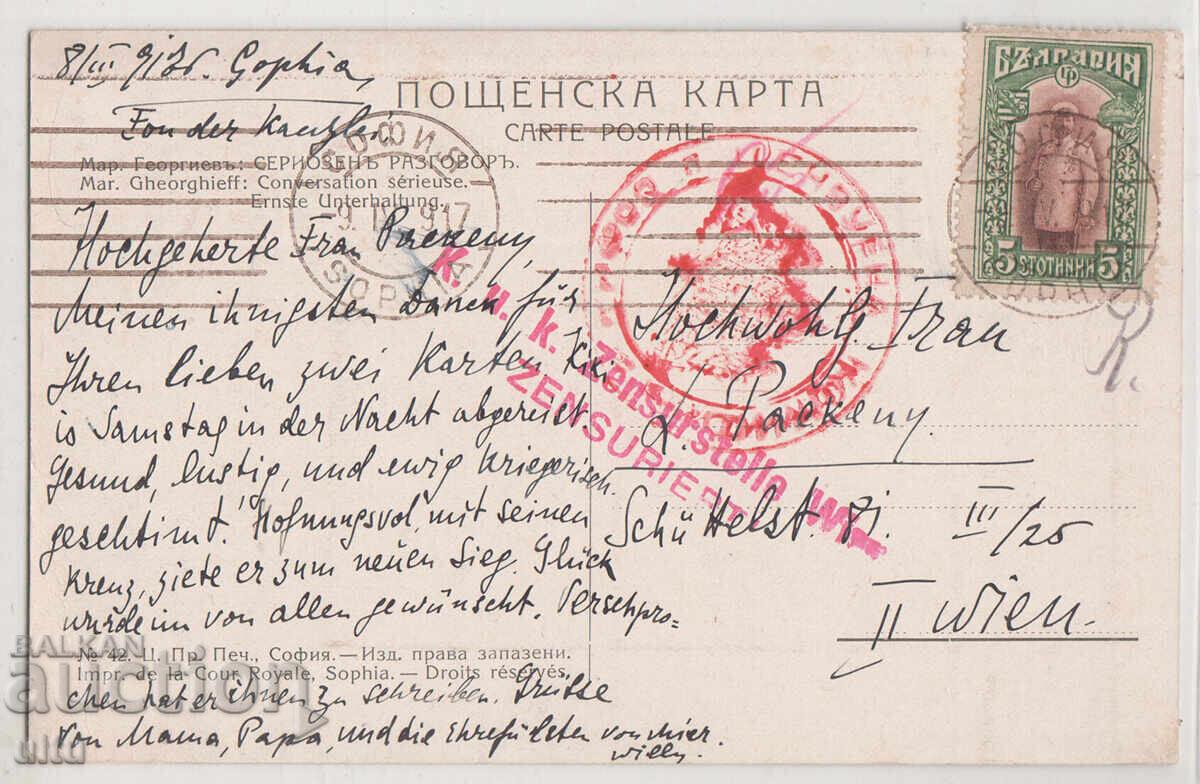 8/III 917. Sophia,
ПОЩЕНСКА КАРТА
Fon der Kanzlei
CARTE POSTALE
Мар. Георгиевъ: СЕРИОЗЕНЪ РАЗГОВОРЪ.
Mar. Gheorghieff: Conversation sérieuse.
Ernste Unterhaltung.
СОФИЯ
9. III 917
SOPHIA
Hochgeherte Frau Packeny,
Meinen ihnigsten Danck für
Ihren lieben zwei Karten. Kiki
is Samstag in der Nacht abgereist.
Gesund, lustig, und ewig Kriegerisch
geschtimt! Hofnungsvol, mit seinen
Kreuz, ziete er zum neuen Sieg. Glück
wurde im von allen gewünscht. Verschpro=
№ 42. Ц. Пр. Печ., София. — Изд. права запазени.
Impr. de la Cour Royale, Sophia. — Droits réservés.
chen hat er ihnen zu schreiben. Grüsse
von Mama, Papa, und die Ehrefülsten von mier.
Willy.
БЪЛГАРИЯ
5 СТОТИНКИ 5
K. u. k. Zensurstelle
ZENSURIERT
Hochwohlg. Frau
L. Packeny.
Schüttelst. 81. III/25
II Wien.
R.
BALKAN
auction